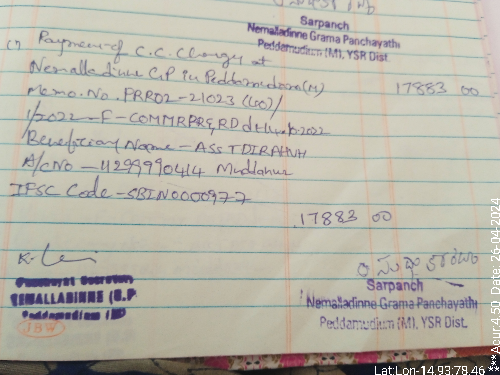 Sarpanch
Nemalladinne Grama Panchayathi
Peddamudium (M), YSR Dist.
Payment of C.C. Charges at
Nemalladinne G.P in Peddamudium(M) 17883 00
Memo. No. PRR02-21023 (
1/2022-F-COMMRPR&RD
Beneficiary Name - ASSTDIRAHVH
A/c No - 4299990414 Muddanur
IFSC Code - SBIN0000977
17883 00
Panchayat Secretary
NEMALLADINNE (G.P
Peddamudium (M)
Sarpanch
Nemalladinne Grama Panchayathi
Peddamudium (M), YSR Dist.
Lat:Lon-14.93:78.46 ***Acur:4.50 Date: 26-04-2024